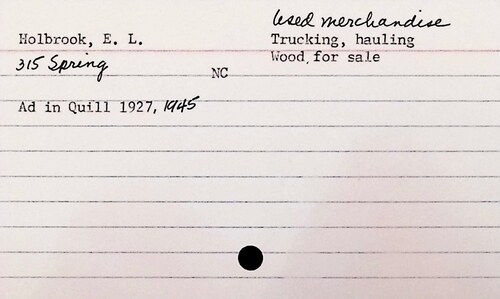 Used merchandise
Holbrook, E. L.
Trucking, hauling
315 Spring
Wood, for sale
NC
Ad in Quill 1927, 1945